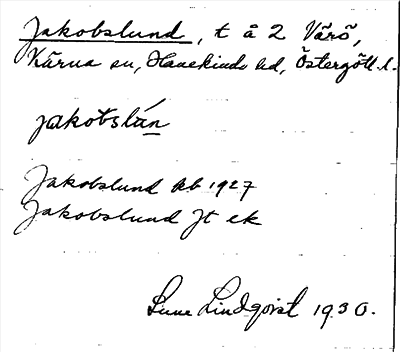 Jakobslund, t å 2 Värö,
Kärna sn, Hanekinds hd, Östergötl. l.
jakòbslán
Jakobslund kb 1927
Jakobslund Jt ek
Sune Lindqvist 1930.